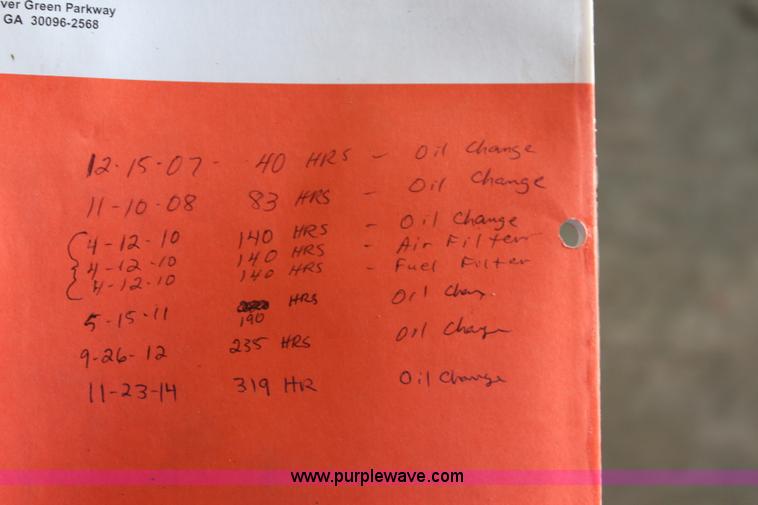 ver Green Parkway
GA 30096-2568
12-15-07 - 40 HRS - Oil Change
11-10-08 83 HRS - Oil Change
4-12-10 140 HRS - Oil Change
4-12-10 140 HRS - Air Filter
4-12-10 140 HRS - Fuel Filter
5-15-11 190 HRS Oil Chang
9-26-12 235 HRS Oil Change
11-23-14 319 HR Oil Change
www.purplewave.com